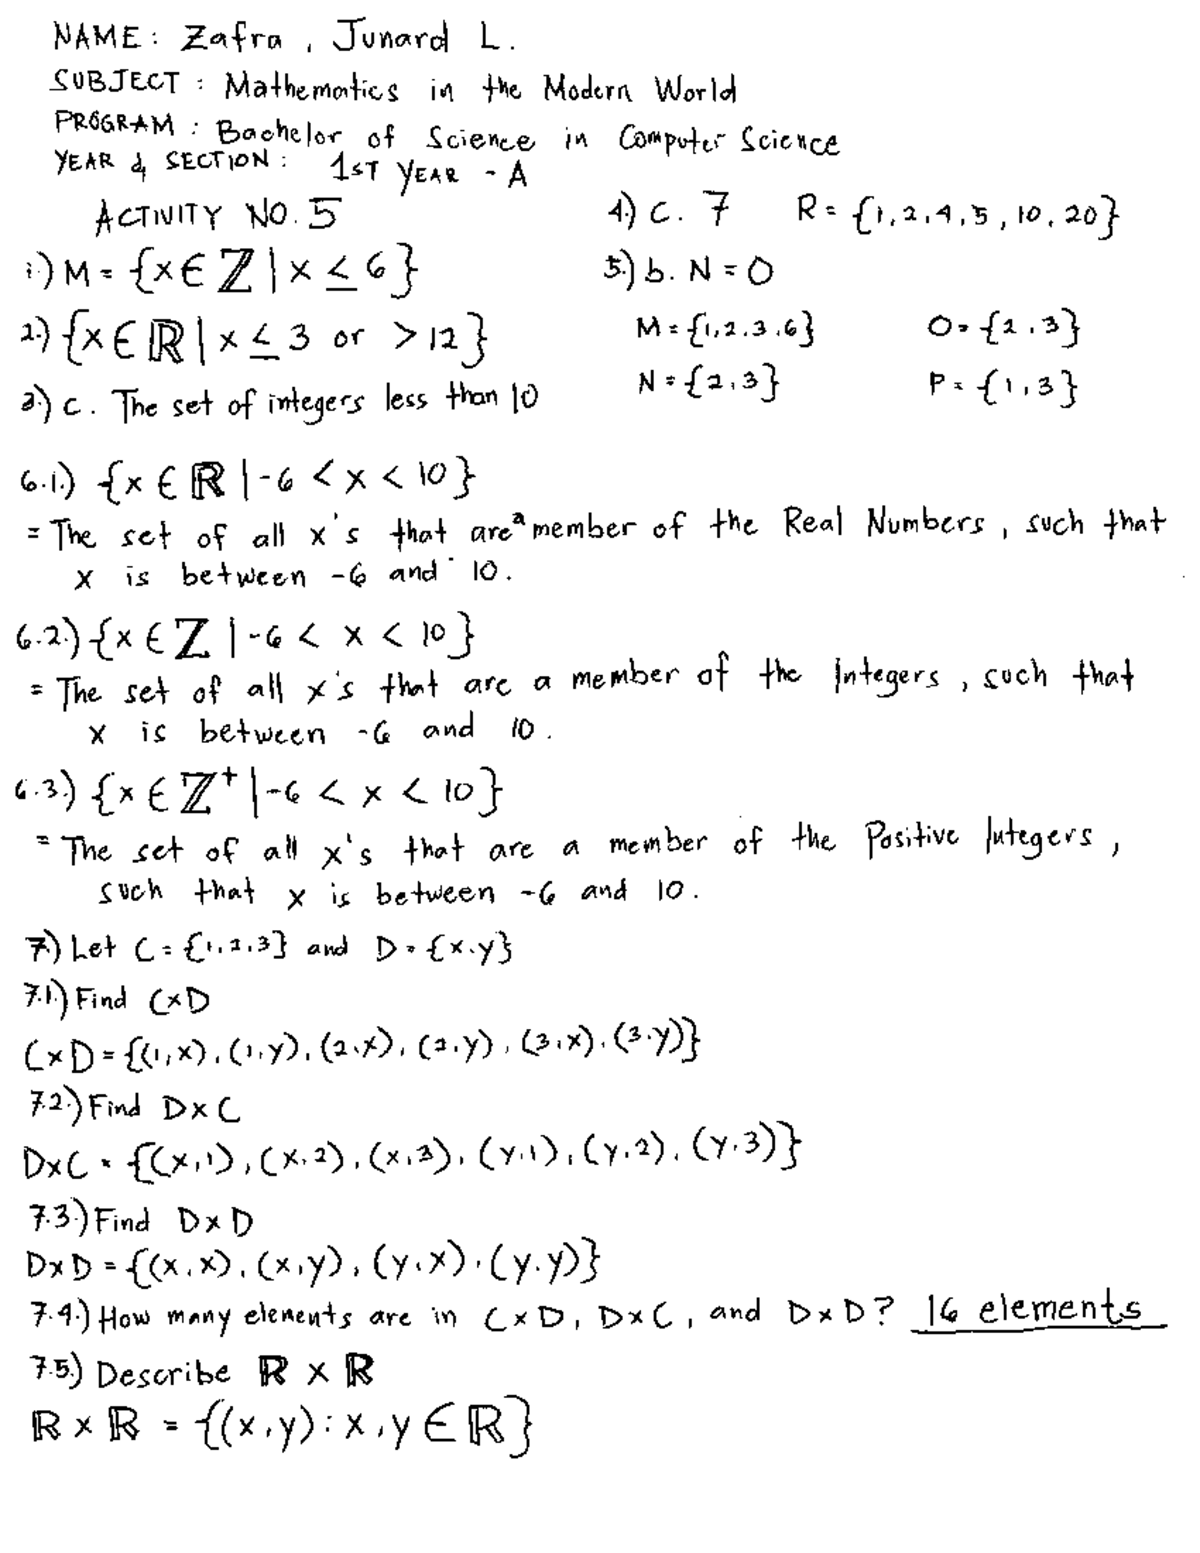 NAME: Zafra, Junard L.
SUBJECT: Mathematics in the Modern World
PROGRAM: Bachelor of Science in Computer Science
YEAR & SECTION: 1ST YEAR - A
ACTIVITY NO. 5
1.) M = {x ∈ ℤ | x ≤ 6}
2.) {x ∈ ℝ | x ≤ 3 or > 12}
3.) c. The set of integers less than 10
4.) c. 7 R = {1, 2, 4, 5, 10, 20}
5.) b. N = O
M = {1, 2, 3, 6} O = {2, 3}
N = {2, 3} P = {1, 3}
6.1.) {x ∈ ℝ | -6 < x < 10}
= The set of all x's that are a member of the Real Numbers, such that
x is between -6 and 10.
6.2.) {x ∈ ℤ | -6 < x < 10}
= The set of all x's that are a member of the Integers, such that
x is between -6 and 10.
6.3.) {x ∈ ℤ⁺ | -6 < x < 10}
= The set of all x's that are a member of the Positive Integers,
such that x is between -6 and 10.
7.) Let C = {1, 2, 3} and D = {x, y}
7.1.) Find C×D
C×D = {(1, x), (1, y), (2, x), (2, y), (3, x), (3, y)}
7.2.) Find D×C
D×C = {(x, 1), (x, 2), (x, 3), (y, 1), (y, 2), (y, 3)}
7.3.) Find D×D
D×D = {(x, x), (x, y), (y, x), (y, y)}
7.4.) How many elements are in C×D, D×C, and D×D? 16 elements
7.5.) Describe ℝ × ℝ
ℝ × ℝ = {(x, y) : x, y ∈ ℝ}